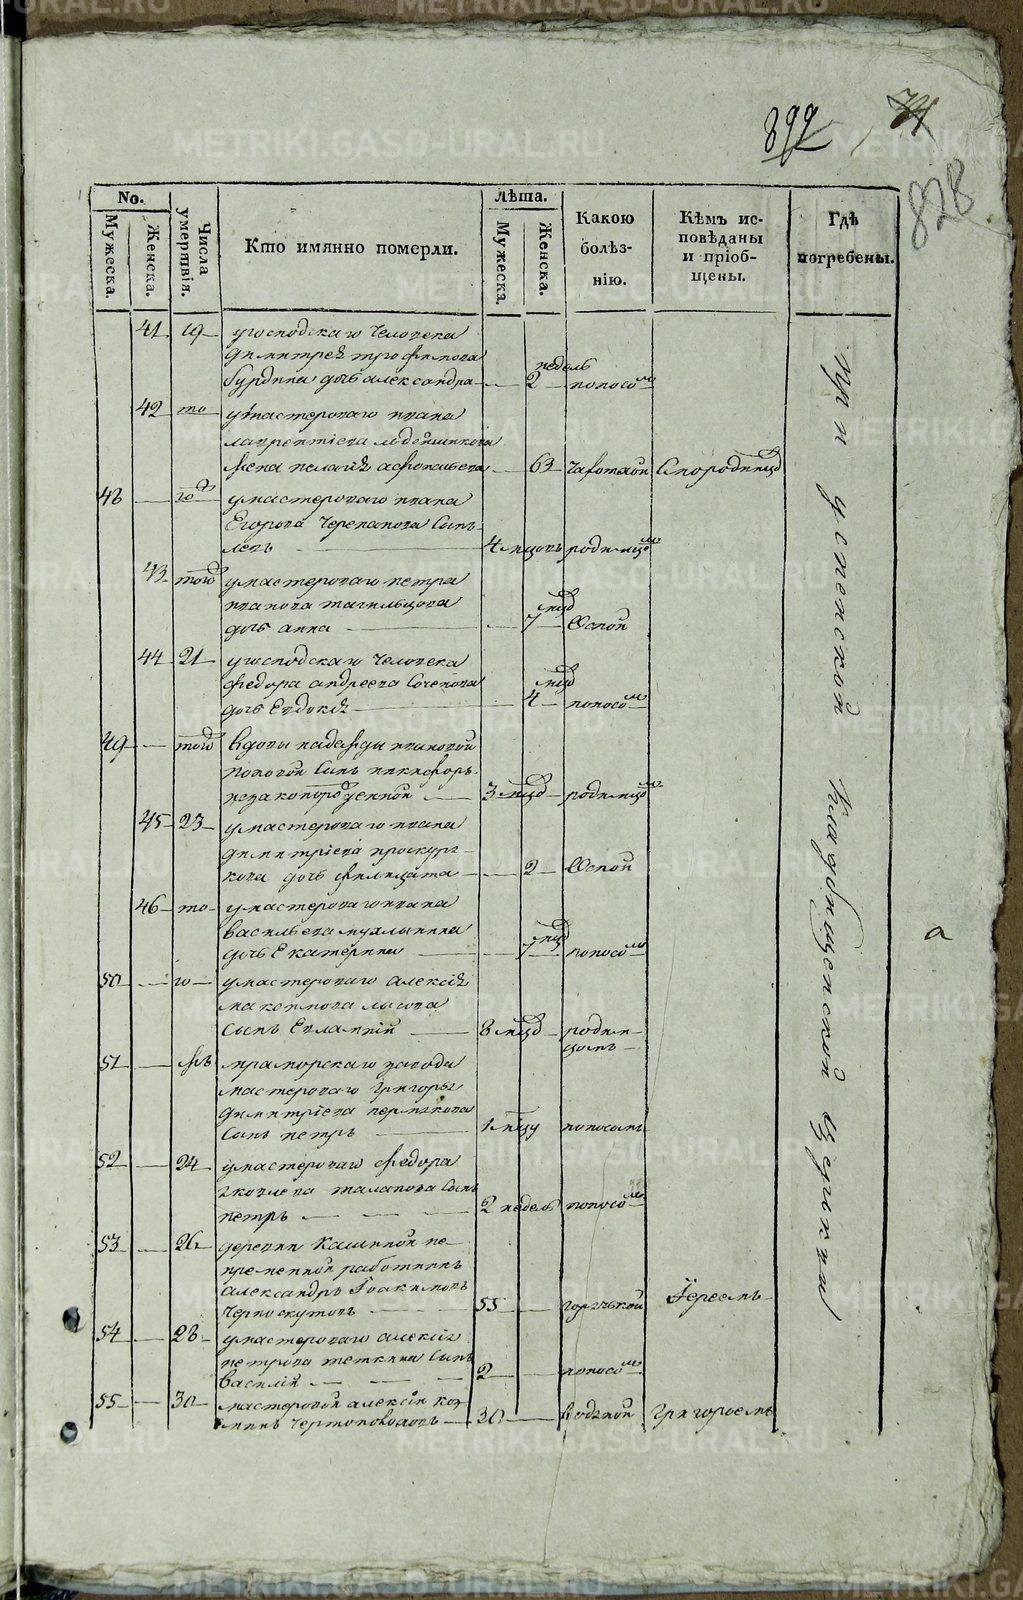 892
74
828
No.
Мужеска.
Женска.
Числа умертвія.
Кто имянно померли.
Лѣта.
Мужеска.
Женска.
Какою болѣз-
нію.
Кѣмъ ис-
повѣданы
и пріоб-
щены.
Гдѣ
погребены.
41 19 у господскаго человека
димитрея трофимова
бурдина дочь александра 2 недель поносом
42 то у мастероваго ивана
лаврентiева
жена пелагея 63 чахоткой Смородинцо
48 то у мастероваго ивана
Егорова Черепанова Сынъ
левъ 4 мцовъ родимцом
43 того у мастероваго петра
иванова тагильцова
дочь анна 7 мцо Оспой
44 21 у господскаго человека
федора андреева Соченова
дочь Евдокея 4 мцо поносом
49 того вдовы надежды ивановой
поповой Сынъ никифоръ
незаконорожденной 3 мцо родимцом
45 23 у мастероваго ивана
димитрiева проскур-
кова дочь филицата 2 Оспой
46 то у мастероваго ивана
васильева мухлынина
дочь Екатерина 7 мцо поносом
50 то у мастероваго алексея
максимова лысова
Сынъ Евлампiй 8 мцо родим-
цомъ
51 мраморскаго завода
мастероваго григорья
димитрiева пермякова
Сынъ петръ 1 мцу поносомъ
52 24 у мастероваго федора
яковлева талапова Сынъ
петръ 2 недель поносом
53 26 деревни Кашиной не-
пременной работникъ
александръ Iоакимовъ
Черноскутовъ 55 горячкой Iереемъ
54 28 у мастероваго алексея
петрова теткина Сынъ
василiй 2 поносом
55 30 мастеровой алексей коз-
минъ Чертоповоловъ 30 водяной григорiемъ
При успенской Кладбищенской Церквии
а